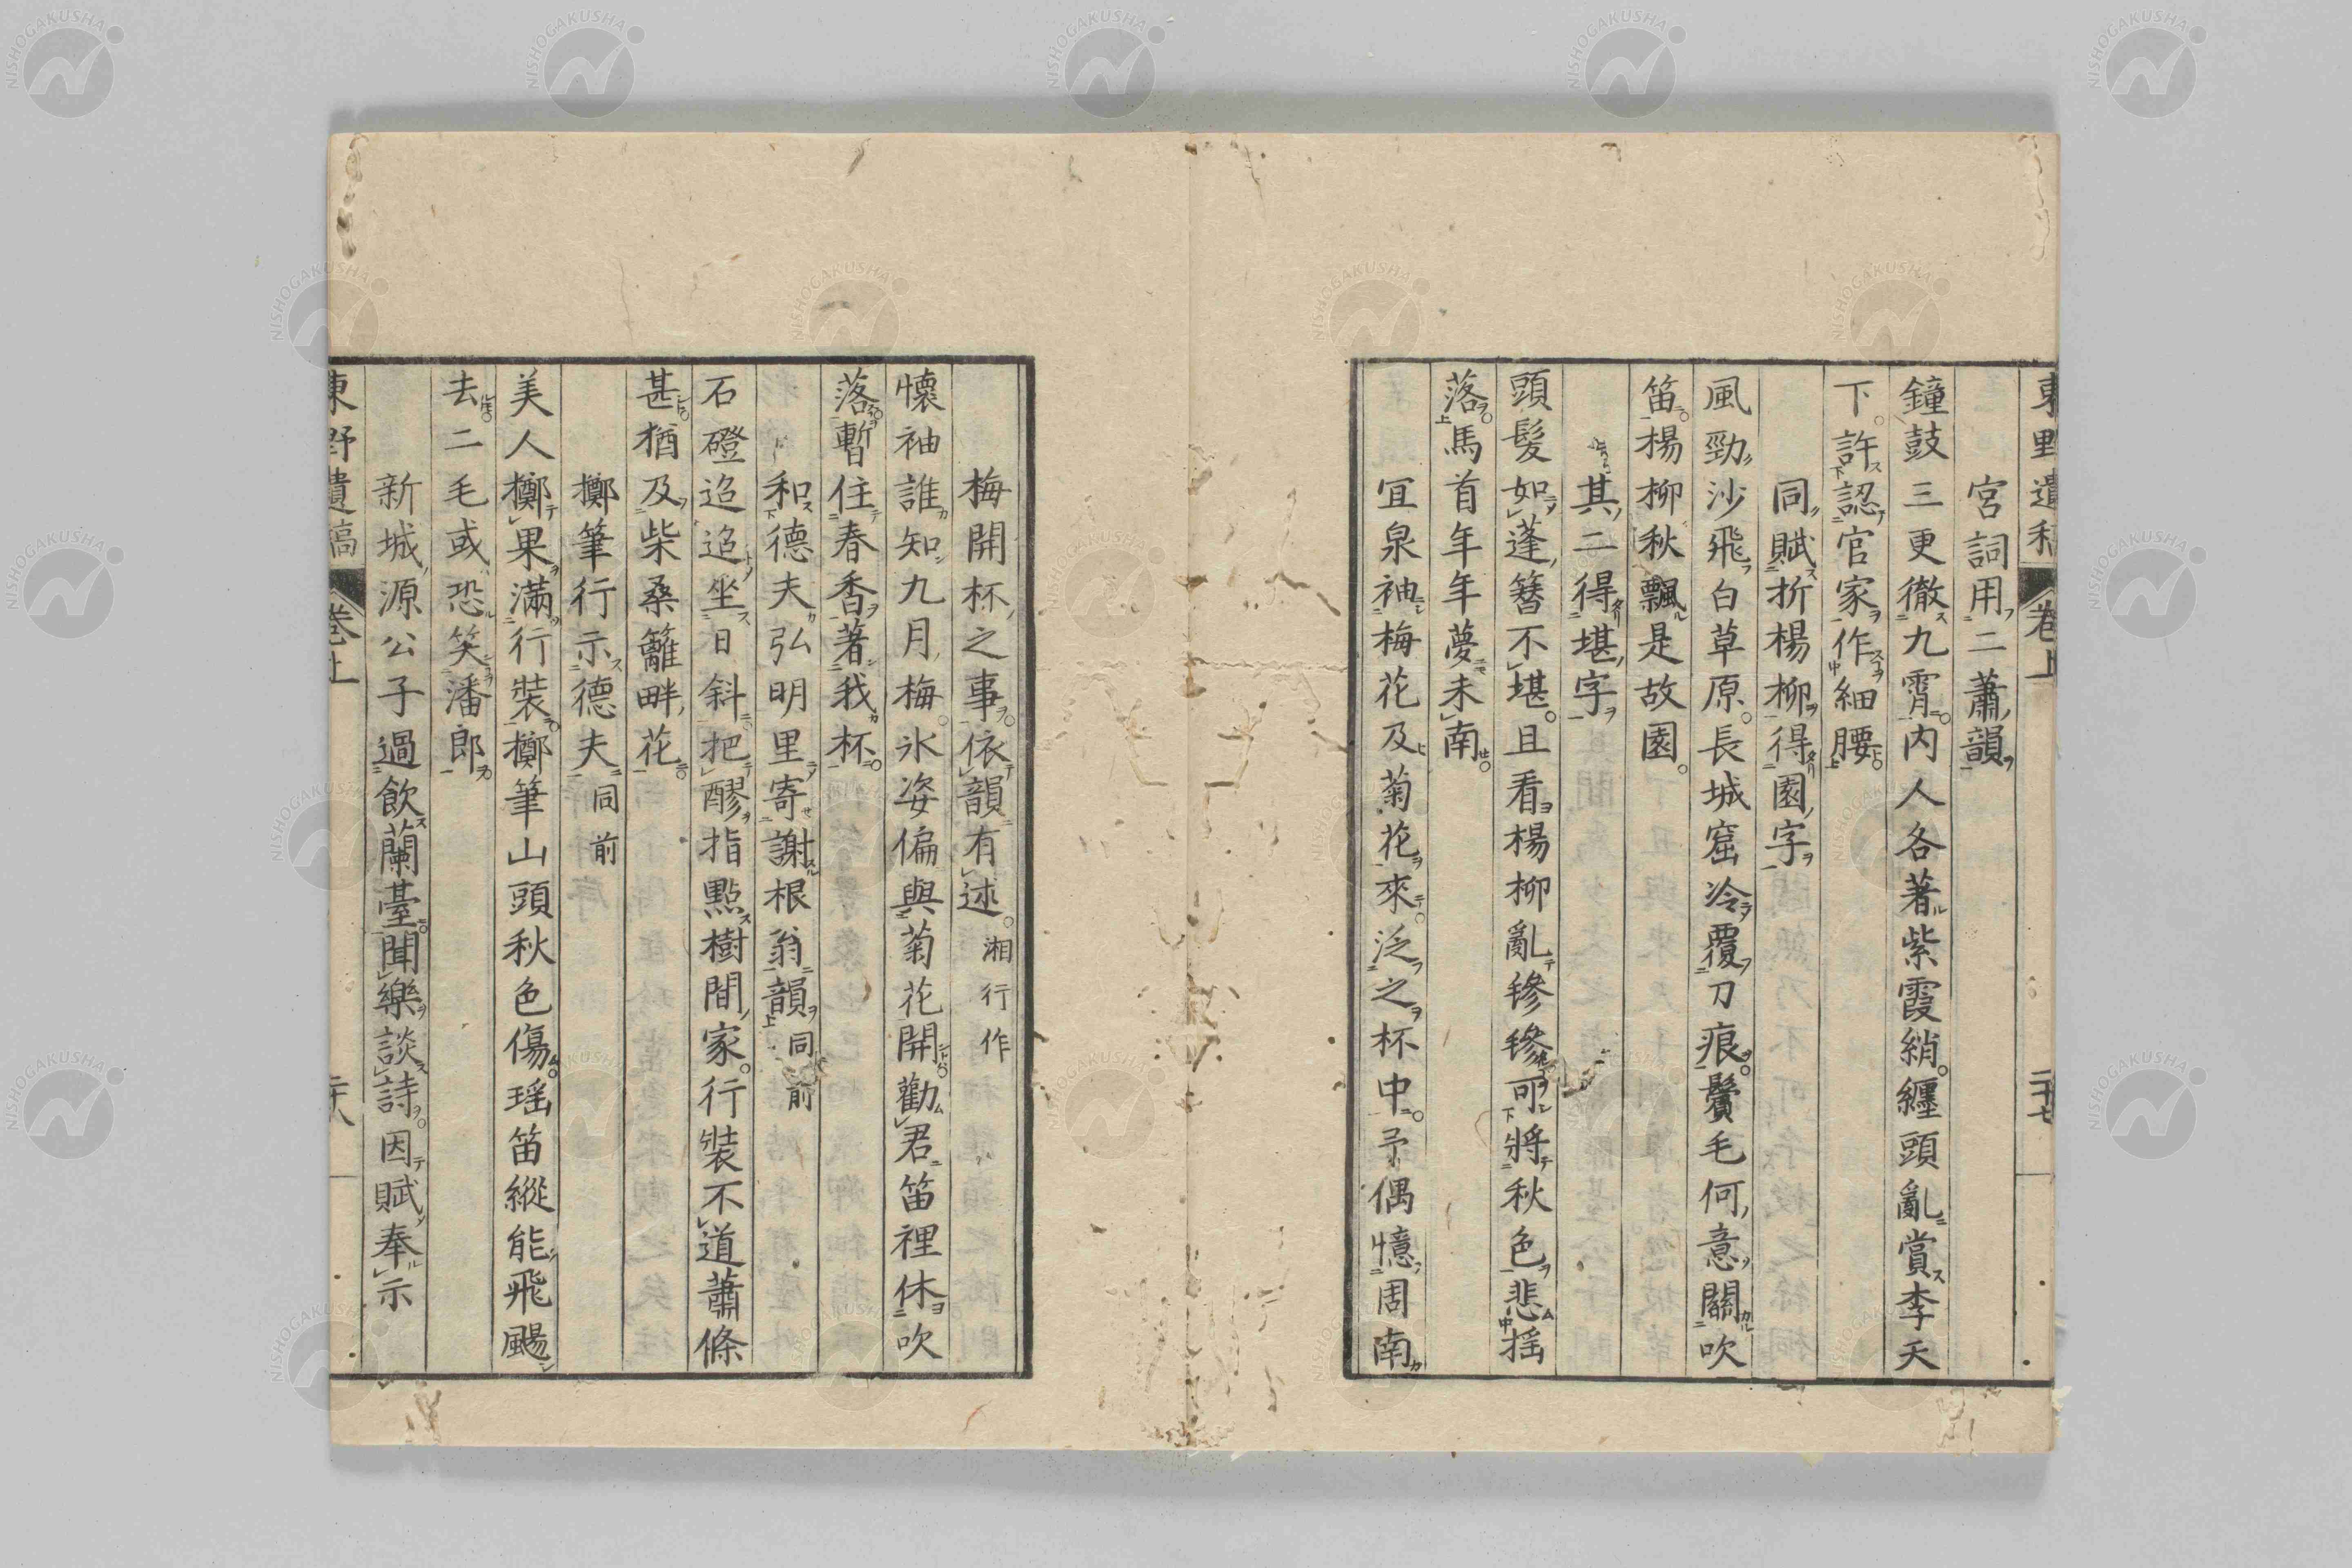 東野遺稿 卷上 二十七
宮詞用二蕭韻
鐘鼓三更徹九霄内人各著紫霞綃纏頭亂賞李天
下許認官家作細腰
同賦折楊柳得園字
風勁沙飛白草原長城窟冷覆刀痕鬢毛何意關吹
笛楊柳秋飄是故園
其二得堪字
頭髮如蓬簪不堪且看楊柳亂鬖鬖可將秋色悲揺
落馬首年年夢未南
冝泉袖梅花及菊花來泛之杯中予偶憶周南
梅開杯之事依韻有述湘行作
懷袖誰知九月梅氷姿偏與菊花開勸君笛裡休吹
落暫住春香著我杯
和德夫弘明里寄謝根翁韻同前
石磴迢迢坐日斜把醪指點樹間家行裝不道蕭條
甚猶及柴桑籬畔花
擲筆行示德夫同前
美人擲果滿行裝擲筆山頭秋色傷瑶笛縱能飛颺
去二毛或恐笑潘郎
新城源公子過飲蘭臺聞樂談詩因賦奉示
東野遺稿 卷上 二十八
NISHOGAKUSHA